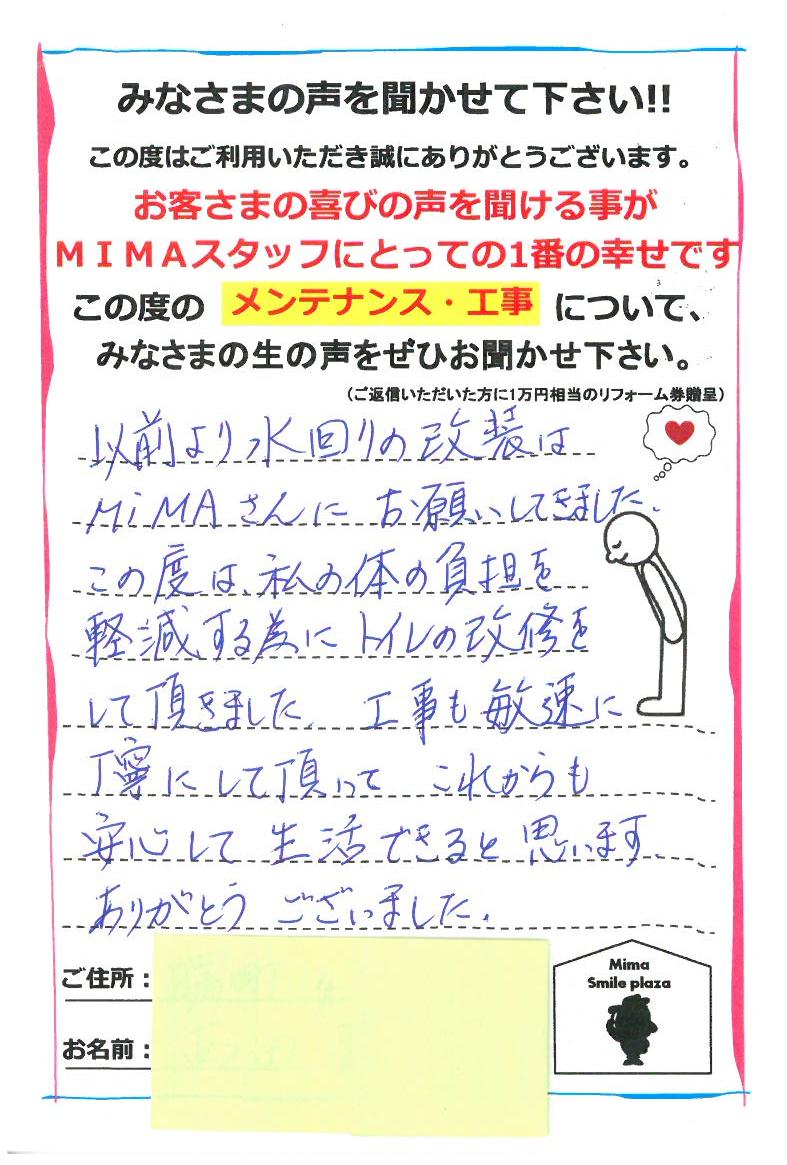 みなさまの声を聞かせて下さい!!
この度はご利用いただき誠にありがとうございます。
お客さまの喜びの声を聞ける事が
ＭＩＭＡスタッフにとっての1番の幸せです
この度の メンテナンス・工事 について、
みなさまの生の声をぜひお聞かせ下さい。
（ご返信いただいた方に1万円相当のリフォーム券贈呈）
以前より水回りの改装は
MiMAさんに お願いしてきました。
この度は、私の体の負担を
軽減する為に トイレの改修を
して頂きました。 工事も敏速に
丁寧にして頂いて これからも
安心して 生活できると 思います。
ありがとう ございました。
ご住所：
お名前：
Mima
Smile plaza